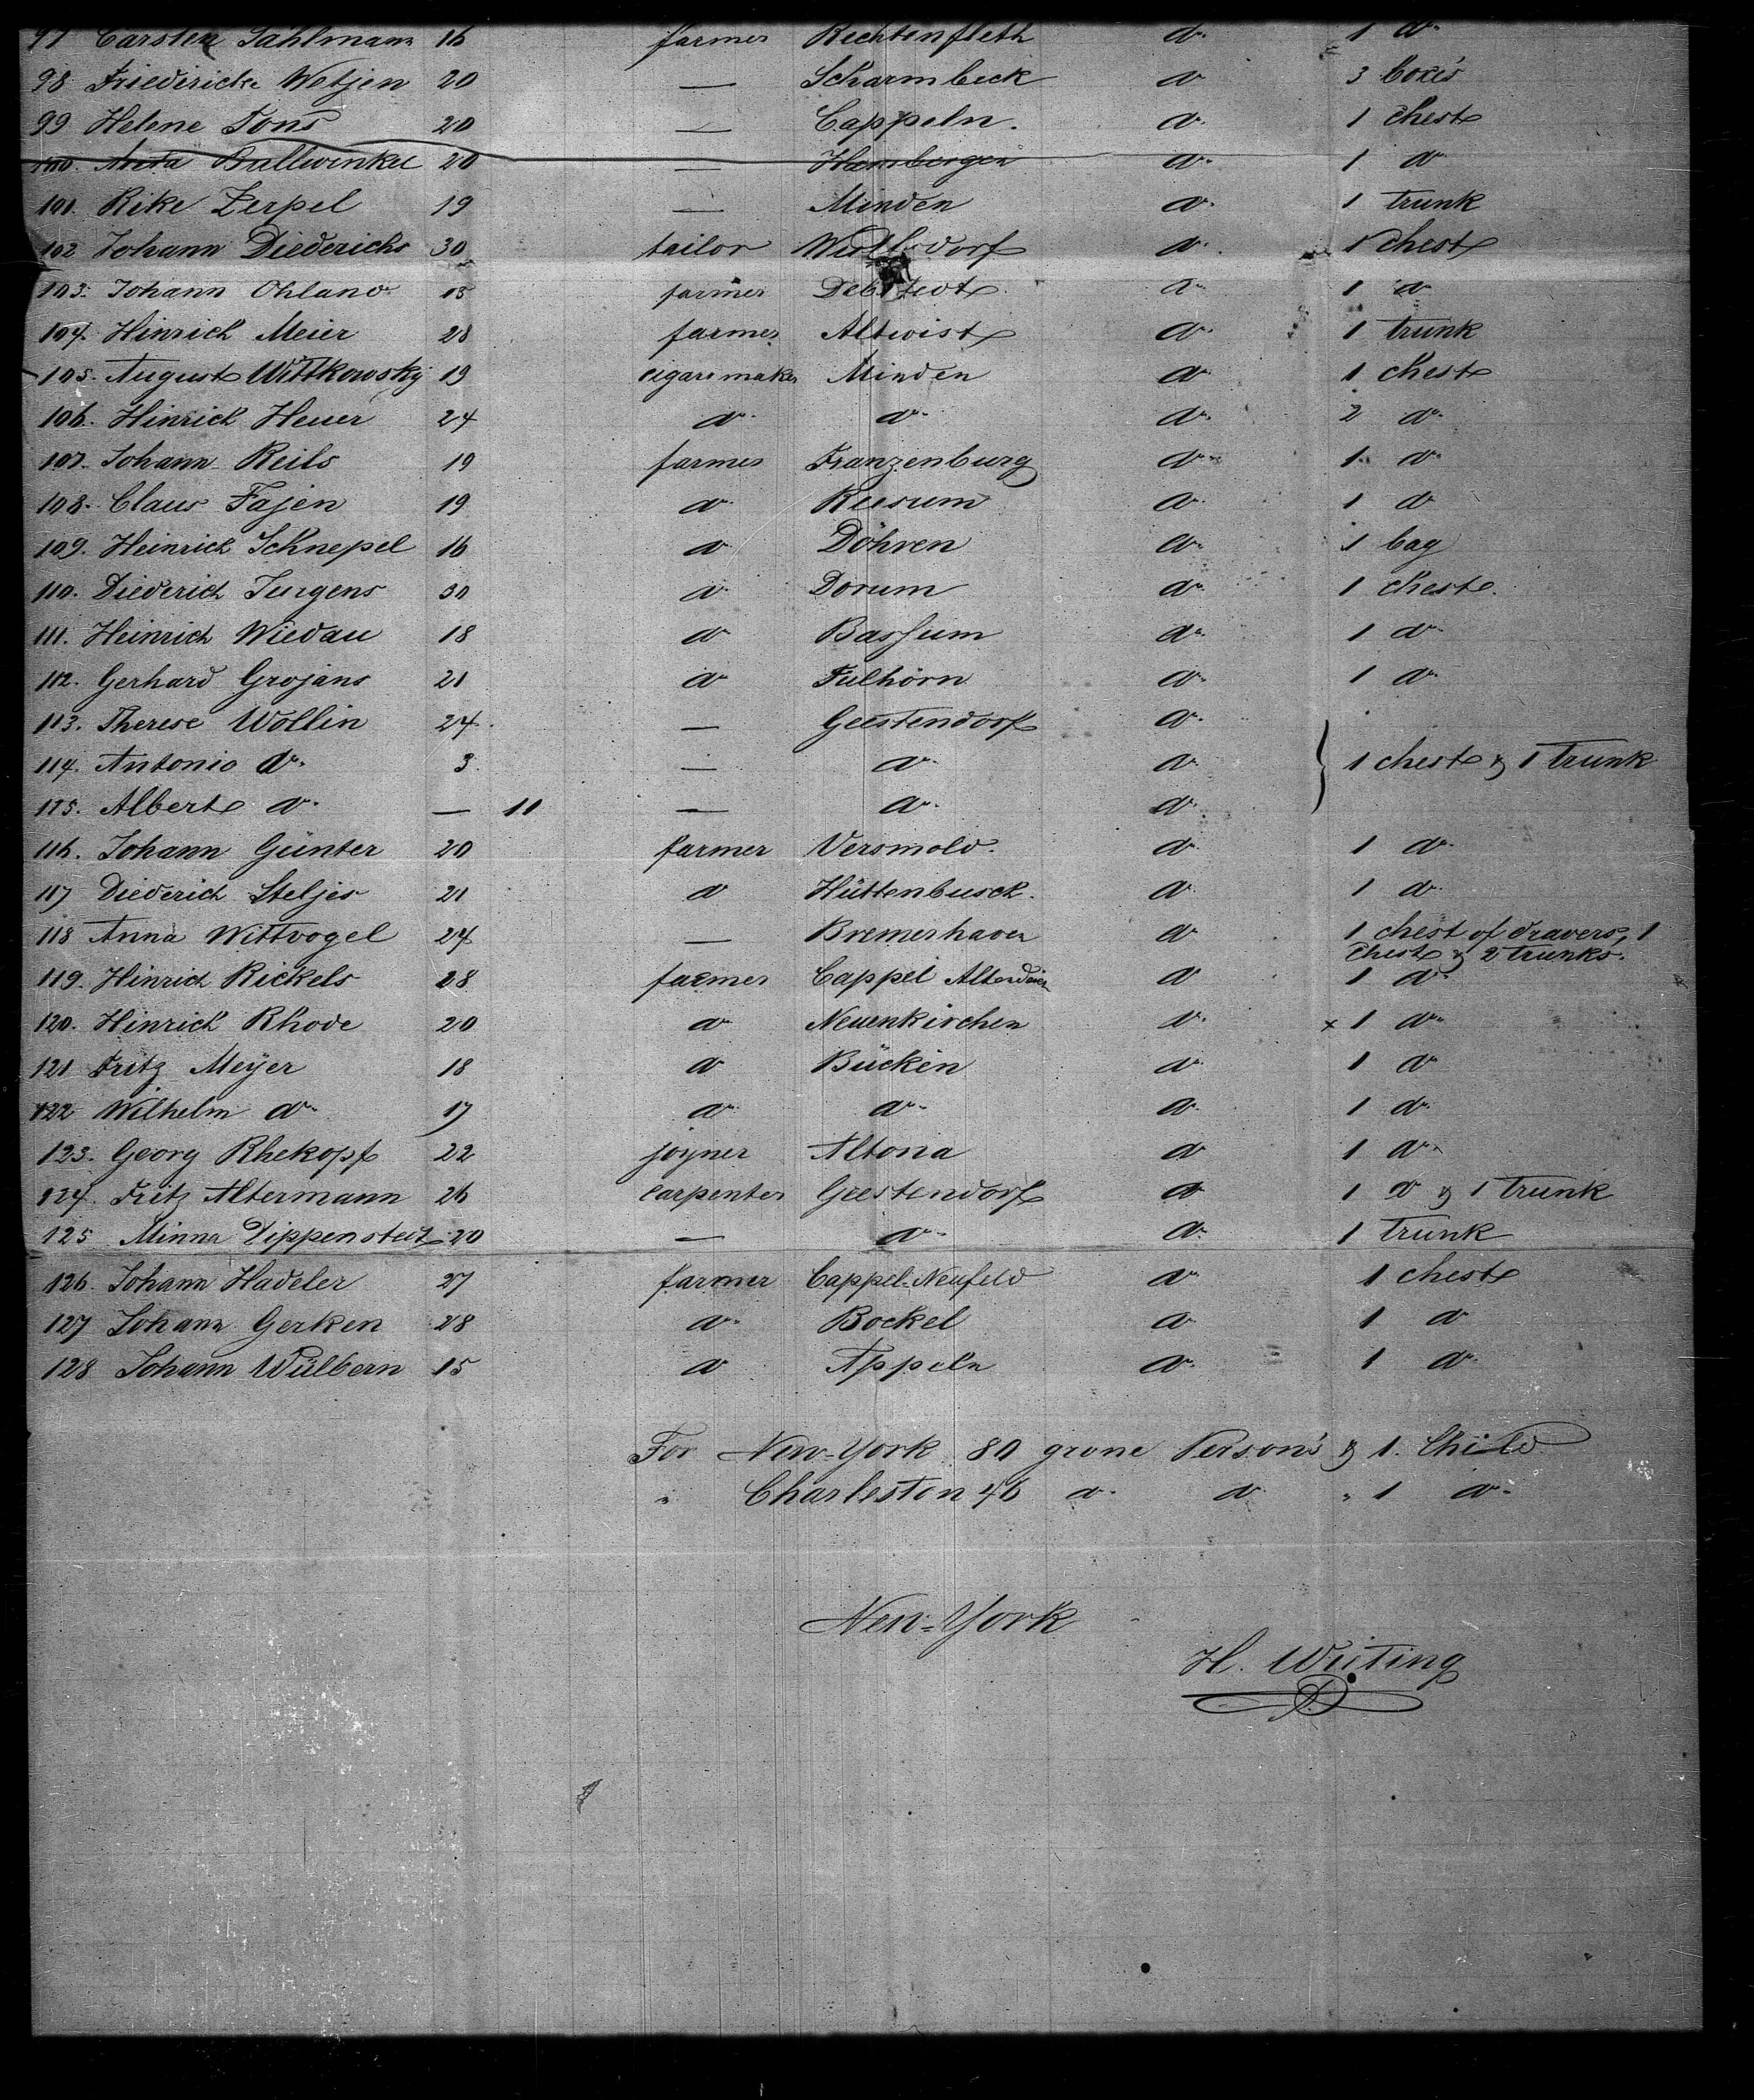 97 Carsten Sahlmann 16 farmer Rechtenfleth do. 1 do.
98 Friedericke Wetjen 20 — Scharmbeck do 3 boxes
99 Helene Tons 20 — Cappeln. do. 1 chest
100. Meta Bullwinkel 20 — Hambergen do. 1 do
101. Rike Zerpel 19 — Minden do. 1 trunk
102 Johann Diederichs 30 tailor do. 1 chest
103. Johann Ohland 15 farmer Debstedt do 1 do
104. Hinrich Meier 28 farmer Altwist do. 1 trunk
105. August Wittkowsky 19 cigarrmaker Minden do 1 chest
106. Hinrich Heuer 24 do. do. do. 2 do.
107. Johann Reils 19 farmer Franzenburg do. 1 do.
108. Claus Fajen 19 do. Reesum do. 1 do
109. Heinrich Schnepel 16 do Döhren do. 1 bag
110. Diederich Jurgens 30 do. Dorum do. 1 chest.
111. Heinrich Wiedau 18 do Bassum do. 1 do.
112. Gerhard Grojans 21 do Fulhörn do. 1 do.
113. Therese Wollin 24. — Geestendorf do.
114. Antonio do. 3 — do. do. 1 chest & 1 trunk
115. Albert do. — 11 — do. do.
116. Johann Günter 20 farmer Versmold. do. 1 do.
117 Diederich Steljes 21 do Hüttenbusch. do 1 do.
118 Anna Wittvogel 24 — Bremerhaven do 1 chest of dravers, 1
chest & 2 trunks.
119. Hinrich Rickels 28 farmer Cappel Alterdeich do 1 do.
120. Hinrich Rhode 20 do Neuenkirchen do. x 1 do.
121 Fritz Meÿer 18 do Bücken do. 1 do
122 Wilhelm do. 17 do. do. do. 1 do.
123. Georg Rhekopf 22 joyner Altona do 1 do.
124. Fritz Altermann 26 carpenter Geestendorf do 1 do & 1 trunk
125 Minna Dippenstedt 20 — do. do. 1 trunk
126. Johann Hadeler 27 farmer Cappel-Neufeld do. 1 chest
127 Johann Gerken 28 do. Bockel do. 1 do
128 Johann Wülbern 15 do Appeln do. 1 do.
For New-York 80 grone Person's & 1. Child
" Charleston 46 do. do. " 1 do.
New-York
H. Wieting